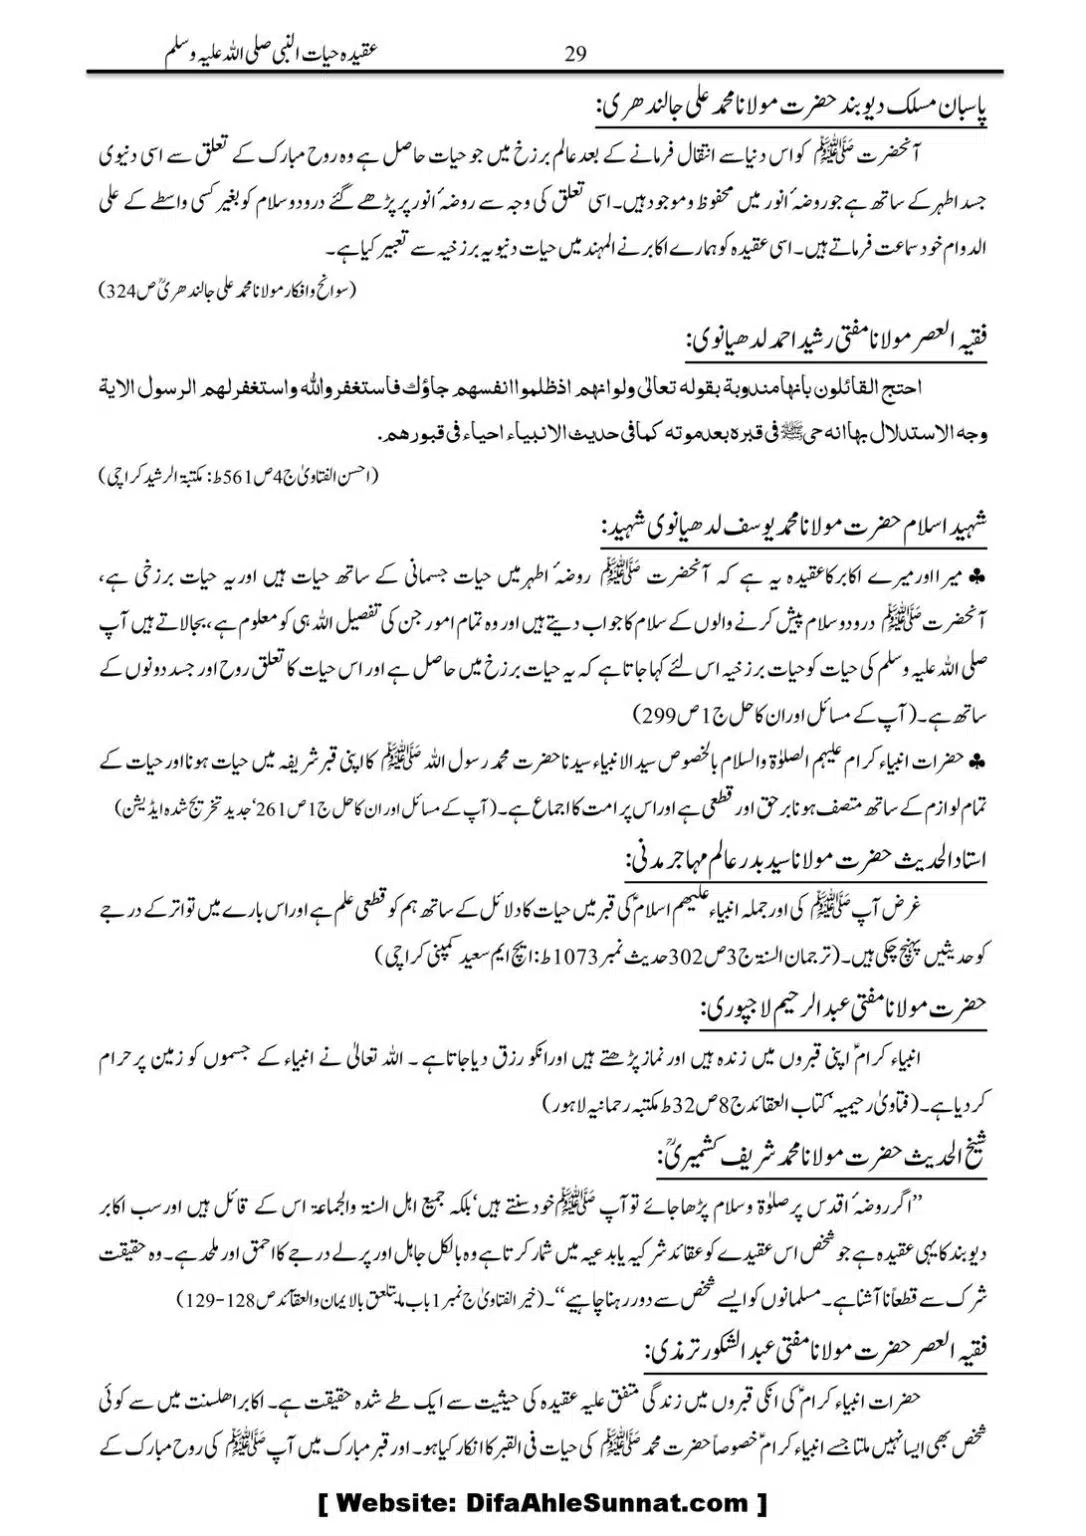 عقیدہ حیات النبی صلی اللہ علیہ وسلم
29
پاسبان مسلک دیوبند حضرت مولانا محمد علی جالندھری:
آنحضرت ﷺ کو اس دنیا سے انتقال فرمانے کے بعد عالم برزخ میں جو حیات حاصل ہے وہ روح مبارک کے تعلق سے اسی دنیوی
جسد اطہر کے ساتھ ہے جو روضہ ٔ انور میں محفوظ و موجود ہیں۔ اسی تعلق کی وجہ سے روضہ ٔ انور پر پڑھے گئے درود و سلام کو بغیر کسی واسطے کے علی
الدوام خود سماعت فرماتے ہیں۔ اسی عقیدہ کو ہمارے اکابر نے المہند میں حیات دنیویہ برزخیہ سے تعبیر کیا ہے۔
(سوانح و افکار مولانا محمد علی جالندھریؒ ص324)
فقیہ العصر مولانا مفتی رشید احمد لدھیانوی:
احتج القائلون بأنها مندوبة بقوله تعالیٰ ولو انهم اذظلموا انفسهم جاؤك فاستغفروالله واستغفر لهم الرسول الاية
وجه الاستدلال بها انه حیﷺ فی قبره بعد موته كما فی حديث الانبياء احياء فی قبورهم.
(احسن الفتاویٰ ج4ص561 ط: مکتبۃ الرشید کراچی)
شہید اسلام حضرت مولانا محمد یوسف لدھیانوی شہید:
♣ میرا اور میرے اکابر کا عقیدہ یہ ہے کہ آنحضرت ﷺ روضہ ٔ اطہر میں حیات جسمانی کے ساتھ حیات ہیں اور یہ حیات برزخی ہے،
آنحضرت ﷺ درود و سلام پیش کرنے والوں کے سلام کا جواب دیتے ہیں اور وہ تمام امور جن کی تفصیل اللہ ہی کو معلوم ہے، بجا لاتے ہیں آپ
صلی اللہ علیہ وسلم کی حیات کو حیات برزخیہ اس لئے کہا جاتا ہے کہ یہ حیات برزخ میں حاصل ہے اور اس حیات کا تعلق روح اور جسد دونوں کے
ساتھ ہے۔ (آپ کے مسائل اور ان کا حل ج1ص299)
♣ حضرات انبیاء کرام علیہم الصلوٰۃ والسلام بالخصوص سید الانبیاء سیدنا حضرت محمد رسول اللہ ﷺ کا اپنی قبر شریفہ میں حیات ہونا اور حیات کے
تمام لوازم کے ساتھ متصف ہونا برحق اور قطعی ہے اور اس پر امت کا اجماع ہے۔ (آپ کے مسائل اور ان کا حل ج1ص261‘ جدید تخریج شدہ ایڈیشن)
استاد الحدیث حضرت مولانا سید بدر عالم مہاجر مدنی:
غرض آپ ﷺ کی اور جملہ انبیاء علیھم اسلام ؑ کی قبر میں حیات کا دلائل کے ساتھ ہم کو قطعی علم ہے اور اس بارے میں تواتر کے درجے
کو حدیثیں پہنچ چکی ہیں۔ (ترجمان السنۃ ج3ص302 حدیث نمبر1073 ط: ایچ ایم سعید کمپنی کراچی)
حضرت مولانا مفتی عبد الرحیم لاجپوری:
انبیاء کرام ؑ اپنی قبروں میں زندہ ہیں اور نماز پڑھتے ہیں اور انکو رزق دیا جاتا ہے ۔ اللہ تعالیٰ نے انبیاء کے جسموں کو زمین پر حرام
کردیا ہے۔ (فتاویٰ رحیمیہ‘ کتاب العقائد ج8ص32 ط مکتبہ رحمانیہ لاہور)
شیخ الحدیث حضرت مولانا محمد شریف کشمیریؒ:
’’اگر روضہ ٔ اقدس پر صلوٰۃ و سلام پڑھا جائے تو آپ ﷺ خود سنتے ہیں‘ بلکہ جمیع اہل السنۃ والجماعۃ اس کے قائل ہیں اور سب اکابر
دیوبند کا یہی عقیدہ ہے جو شخص اس عقیدے کو عقائد شرکیہ یا بدعیہ میں شمار کرتا ہے وہ بالکل جاہل اور پرلے درجے کا احمق اور ملحد ہے۔ وہ حقیقت
شرک سے قطعاً نا آشنا ہے۔ مسلمانوں کو ایسے شخص سے دور رہنا چاہیے‘‘۔ (خیر الفتاویٰ ج نمبر1 باب ما یتعلق بالایمان والعقآئد ص128-129)
فقیہ العصر حضرت مولانا مفتی عبد الشکور ترمذی:
حضرات انبیاء کرام ؑ کی انکی قبروں میں زندگی متفق علیہ عقیدہ کی حیثیت سے ایک طے شدہ حقیقت ہے۔ اکابر اھلسنت میں سے کوئی
شخص بھی ایسا نہیں ملتا جسے انبیاء کرام ؑ خصوصاً حضرت محمد ﷺ کی حیات فی القبر کا انکار کیا ہو۔ اور قبر مبارک میں آپ ﷺ کی روح مبارک کے
[ Website: DifaAhleSunnat.com ]